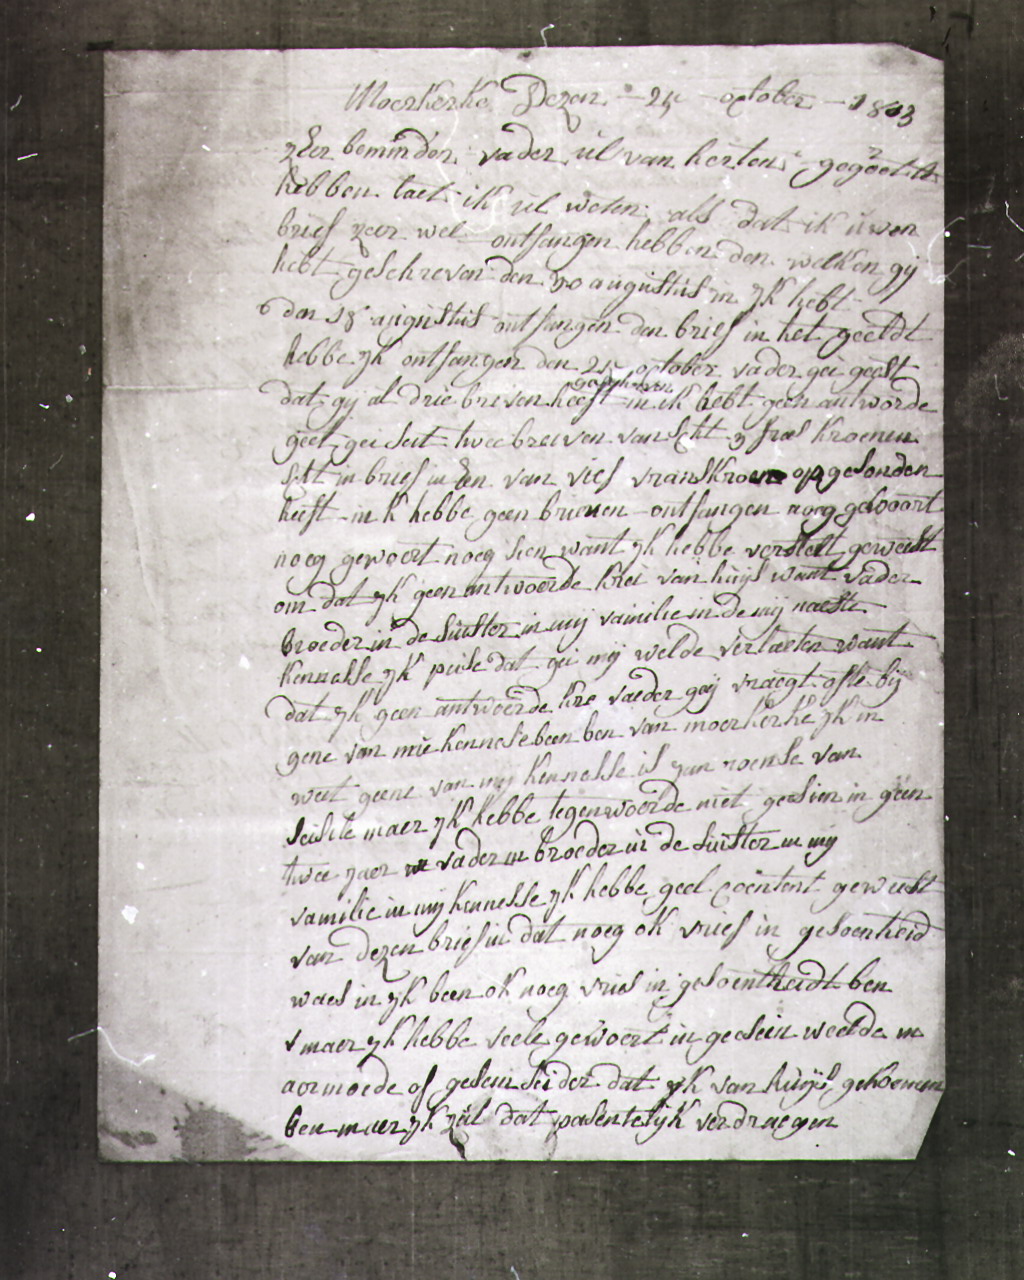 Moerkerke Dezen 25 october 1803
zeer beminden vader ul van herten gegoetit
hebben laet ik ul weten als dat ik uwen
brief zeer wel ontfangen hebben den welken gij
hebt geschreven den 10 augustus in yk hebt
den 18 augustus ontfangen den brief in het geeldt
hebbe yk ontfangen den 25 october vader gei geeft
geschreven
dat gij al drie briven heeft in ik hebt geen antworde
geet gei seit twee breiven van Acht 3 fras kroenen
in brief in Een van vief vranskroen opgesonden
heeft in k hebbe geen brieven ontfangen noeg gehoort
noeg gewoert noeg sien want yk hebbe verstelt geweest
om dat yk geen antwoorde krei van huijs want vader
broeder in de suister in mij vamilie in de mij naeste
kennesse yk peise dat gei mij wilde verlaeten want
dat yk geen antwoerde kre vaeder geij vraegt ofte bij
gene van mie kennese been ben van moerkerke yk in
weet geene van mij kennesse is jan roense van
seisele maer yk hebbe tegenwoerde niet gesien in geen
twee jaer vader in broeder in de suister in mij
vamilie in mij kennesse yk hebbe geel coentent geweest
van dezen brief in dat noeg ok vrief in gesoenheid
waes in yk been ok noeg vries in gesoentheidt ben
maer yk hebbe veele gewoert in geesein weelde in
aormoede of gesein seider dat yk van huijs gekoemen
ben maer yk zal dat pasentelijk verdraegen